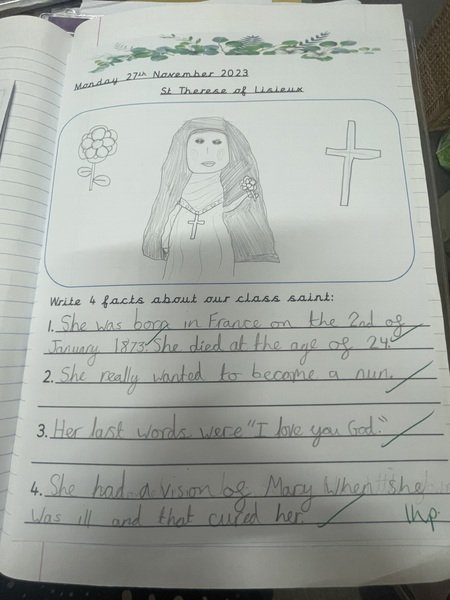 Monday 27th November 2023
St Therese of Lisieux
Write 4 facts about our class saint:
1. She was born in France on the 2nd of
January 1873. She died at the age of 24.
2. She really wanted to become a nun.
3. Her last words were "I love you God."
4. She had a vision of Mary When she
was ill and that cured her.
1hp.